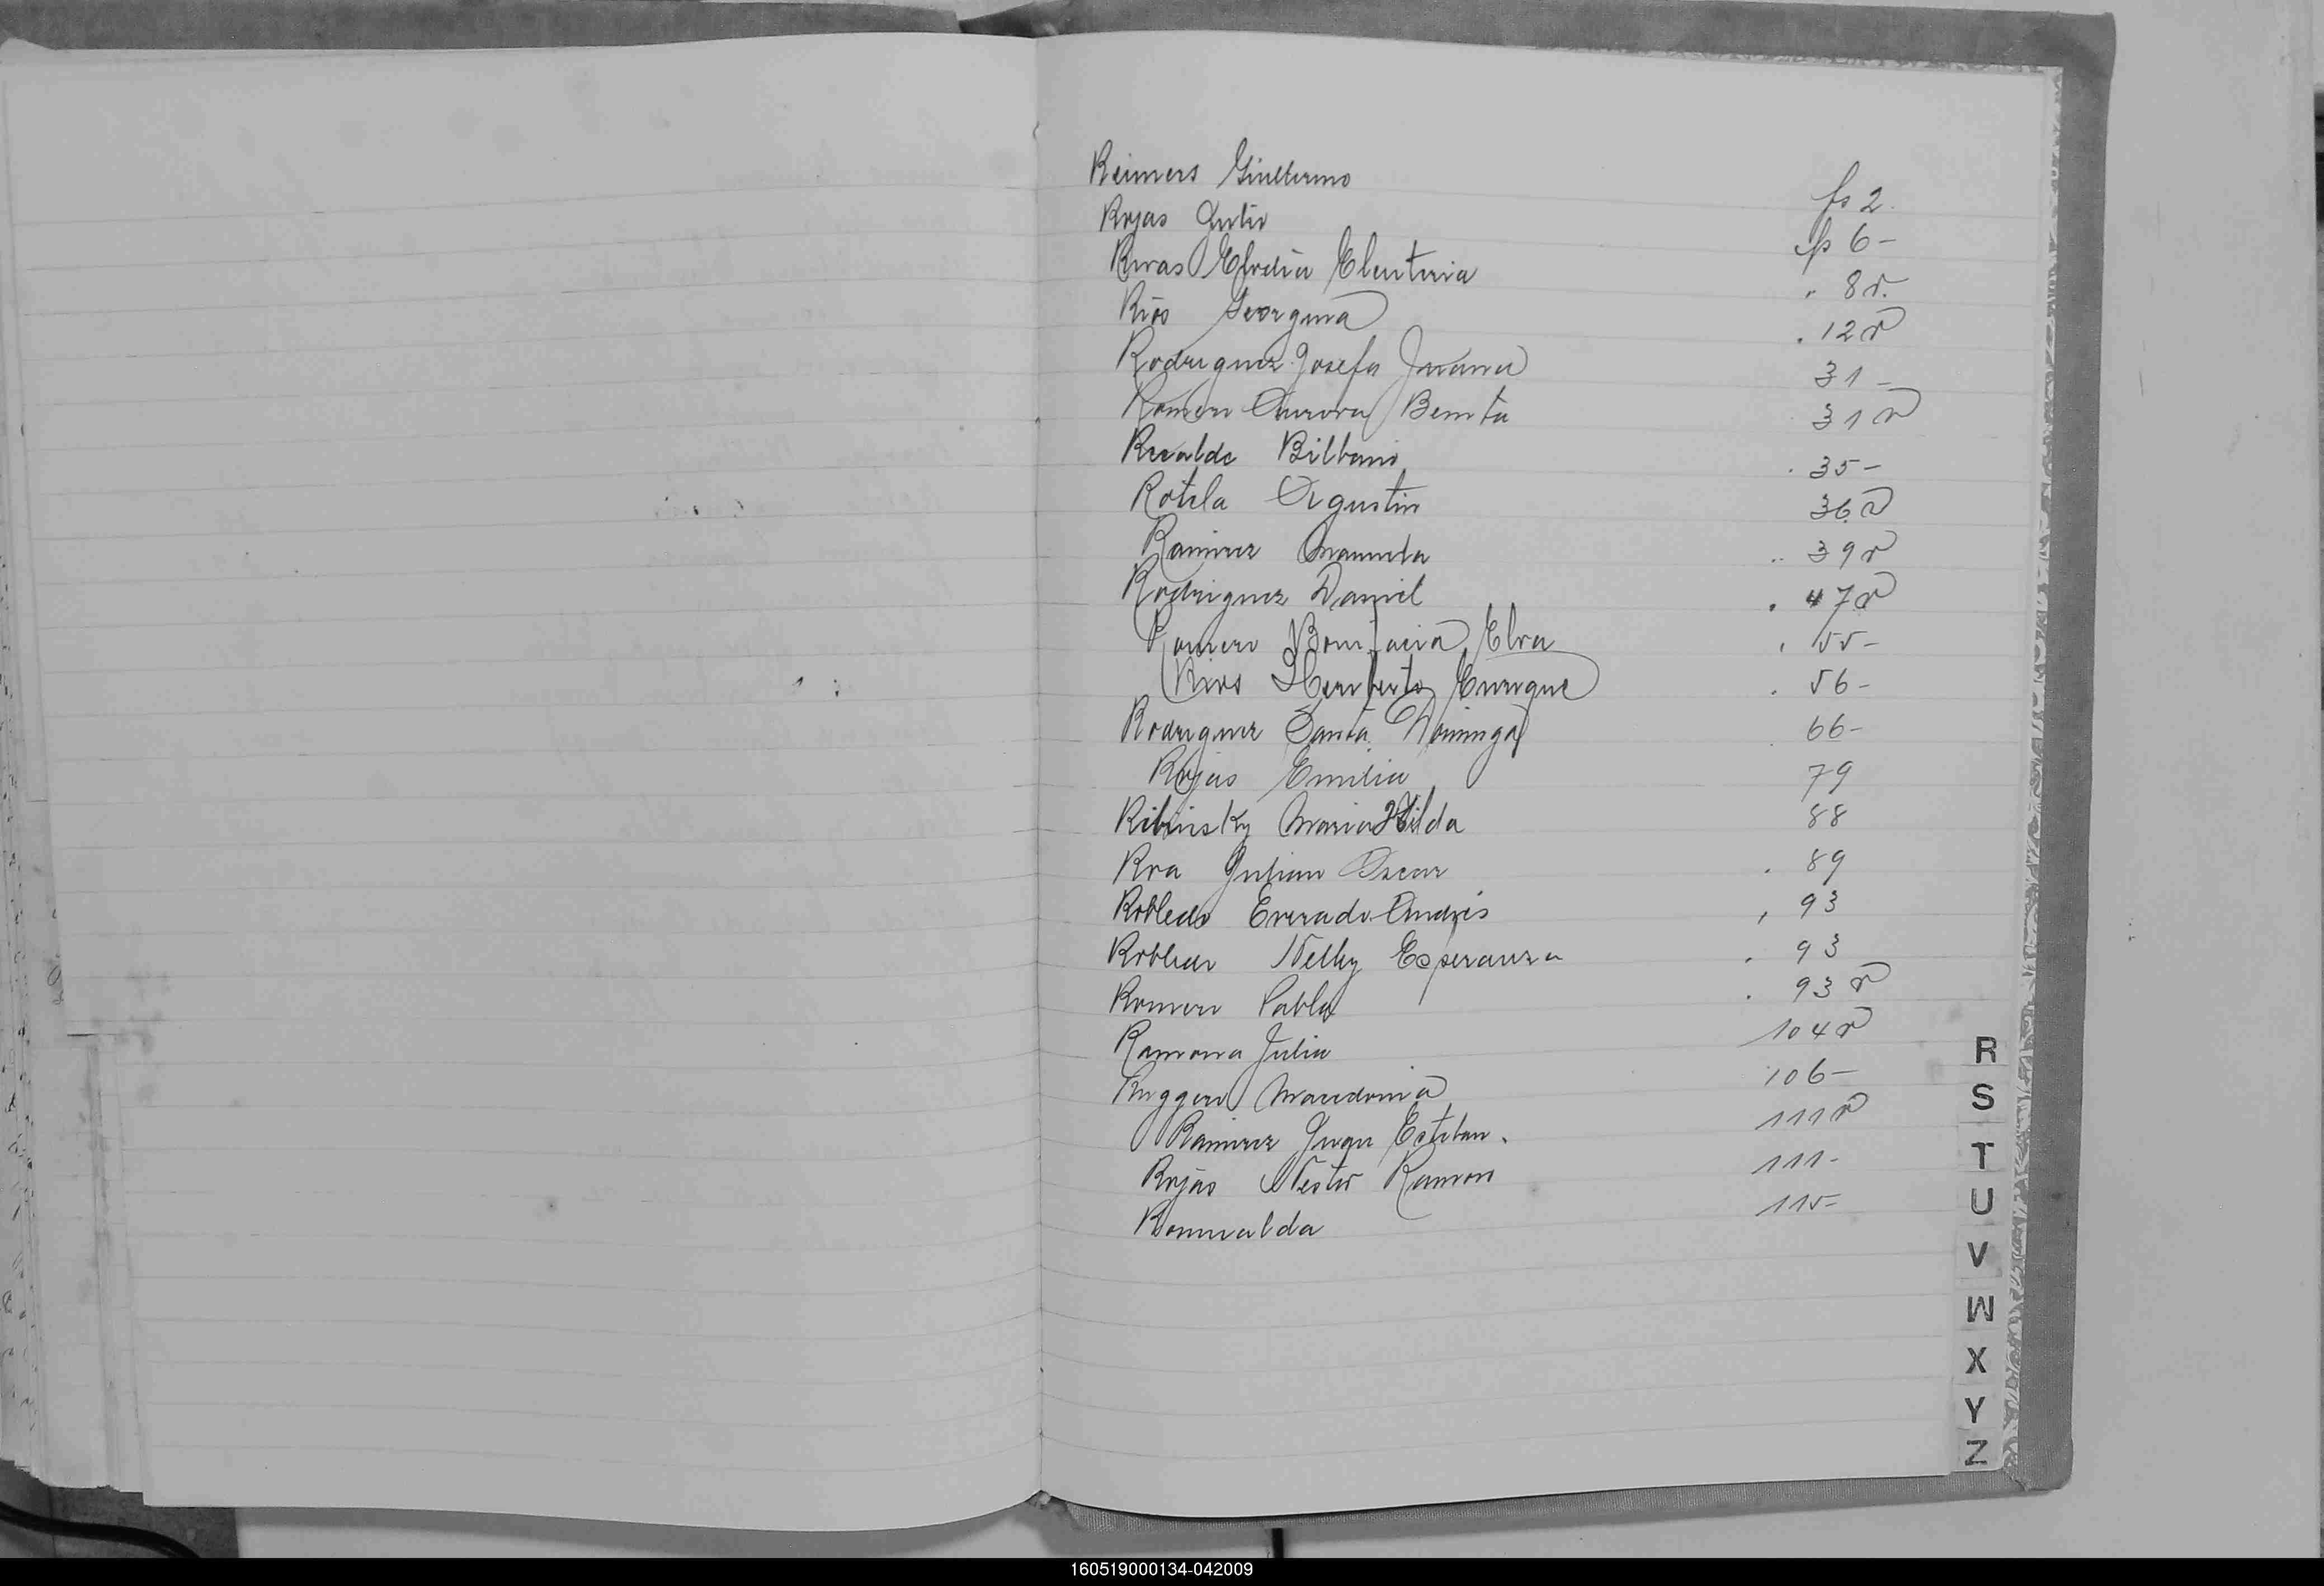 Reimers Guillermo fs 2.
Rojas Julio fs 6-
Rivas Elodia Eleuteria " 8v.
Rios Georgina " 12v
Rodriguez Josefa Juana 31-
Romero Aurora Benita 31v
Recalde Bibiano 35-
Rotela Agustin 36v
Ramirez Manuela 39v
Rodriguez Daniel 47v
Romero Bonifacia Elva 55-
Rios Heriberto Enrique 56-
Rodriguez Santa Dominga 66-
Rojas Emilia 79
Ribinsky Maria Hilda 88
Roa Julian Oscar 89
Robledo Everado Andrés 93
Nelly Esperanza 93
Romero Pablo 93v
Ramona Julia 104v
Ruggero Macedonia 106-
Ramirez Juan Esteban. 111v
Rojas Nestor Ramon 111-
Romualda 115-
R
S
T
U
V
W
X
Y
Z
160519000134-042009